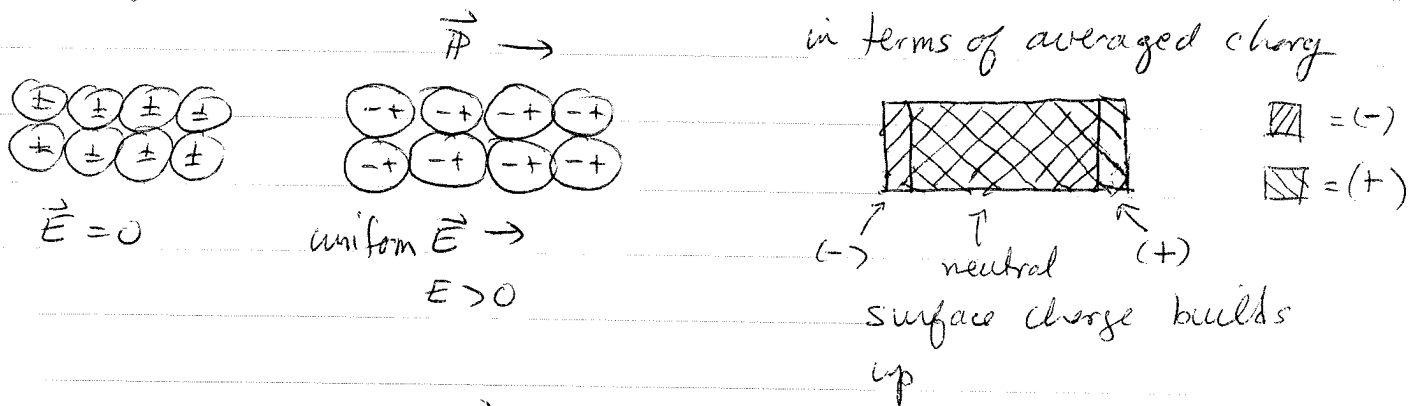 P⃗ →
in terms of averaged charg
± ± ± ±
± ± ± ±
-+ -+ -+ -+
-+ -+ -+ -+
= (-)
= (+)
E⃗ = 0
uniform E⃗ →
E > 0
(-)
neutral
(+)
surface charge builds
up